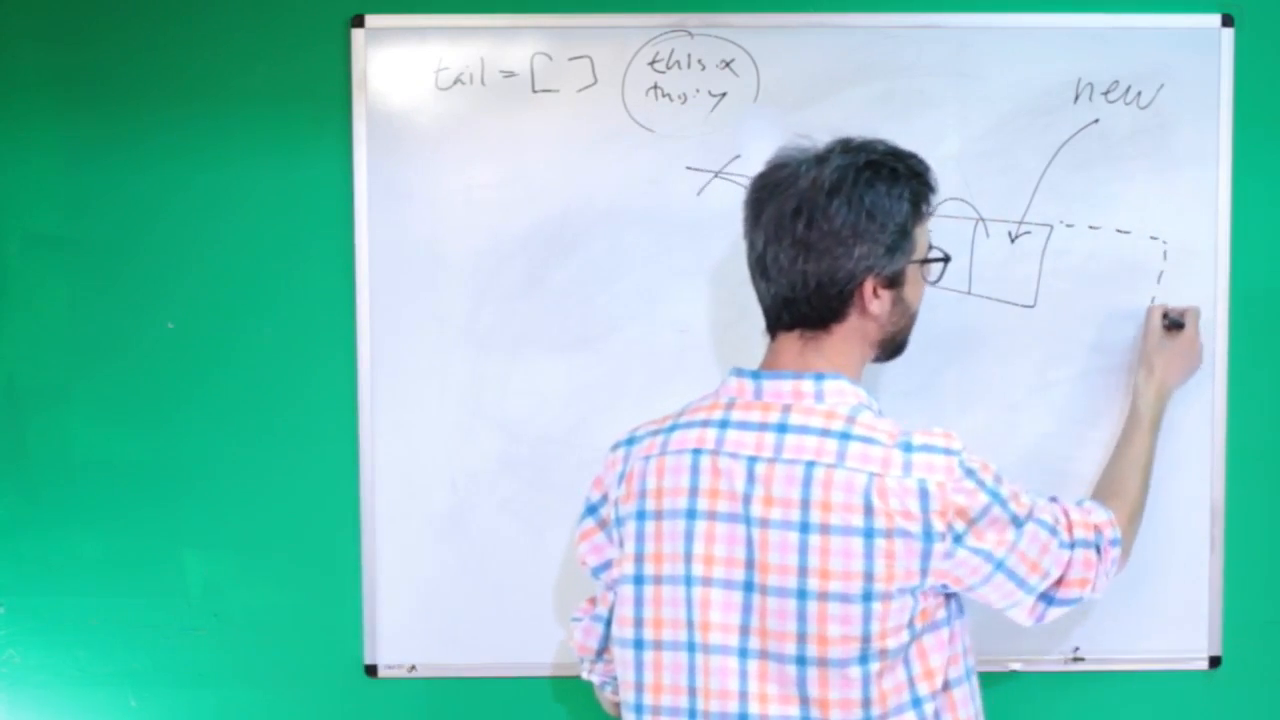 tail = [ ]
this.x
this.y
new